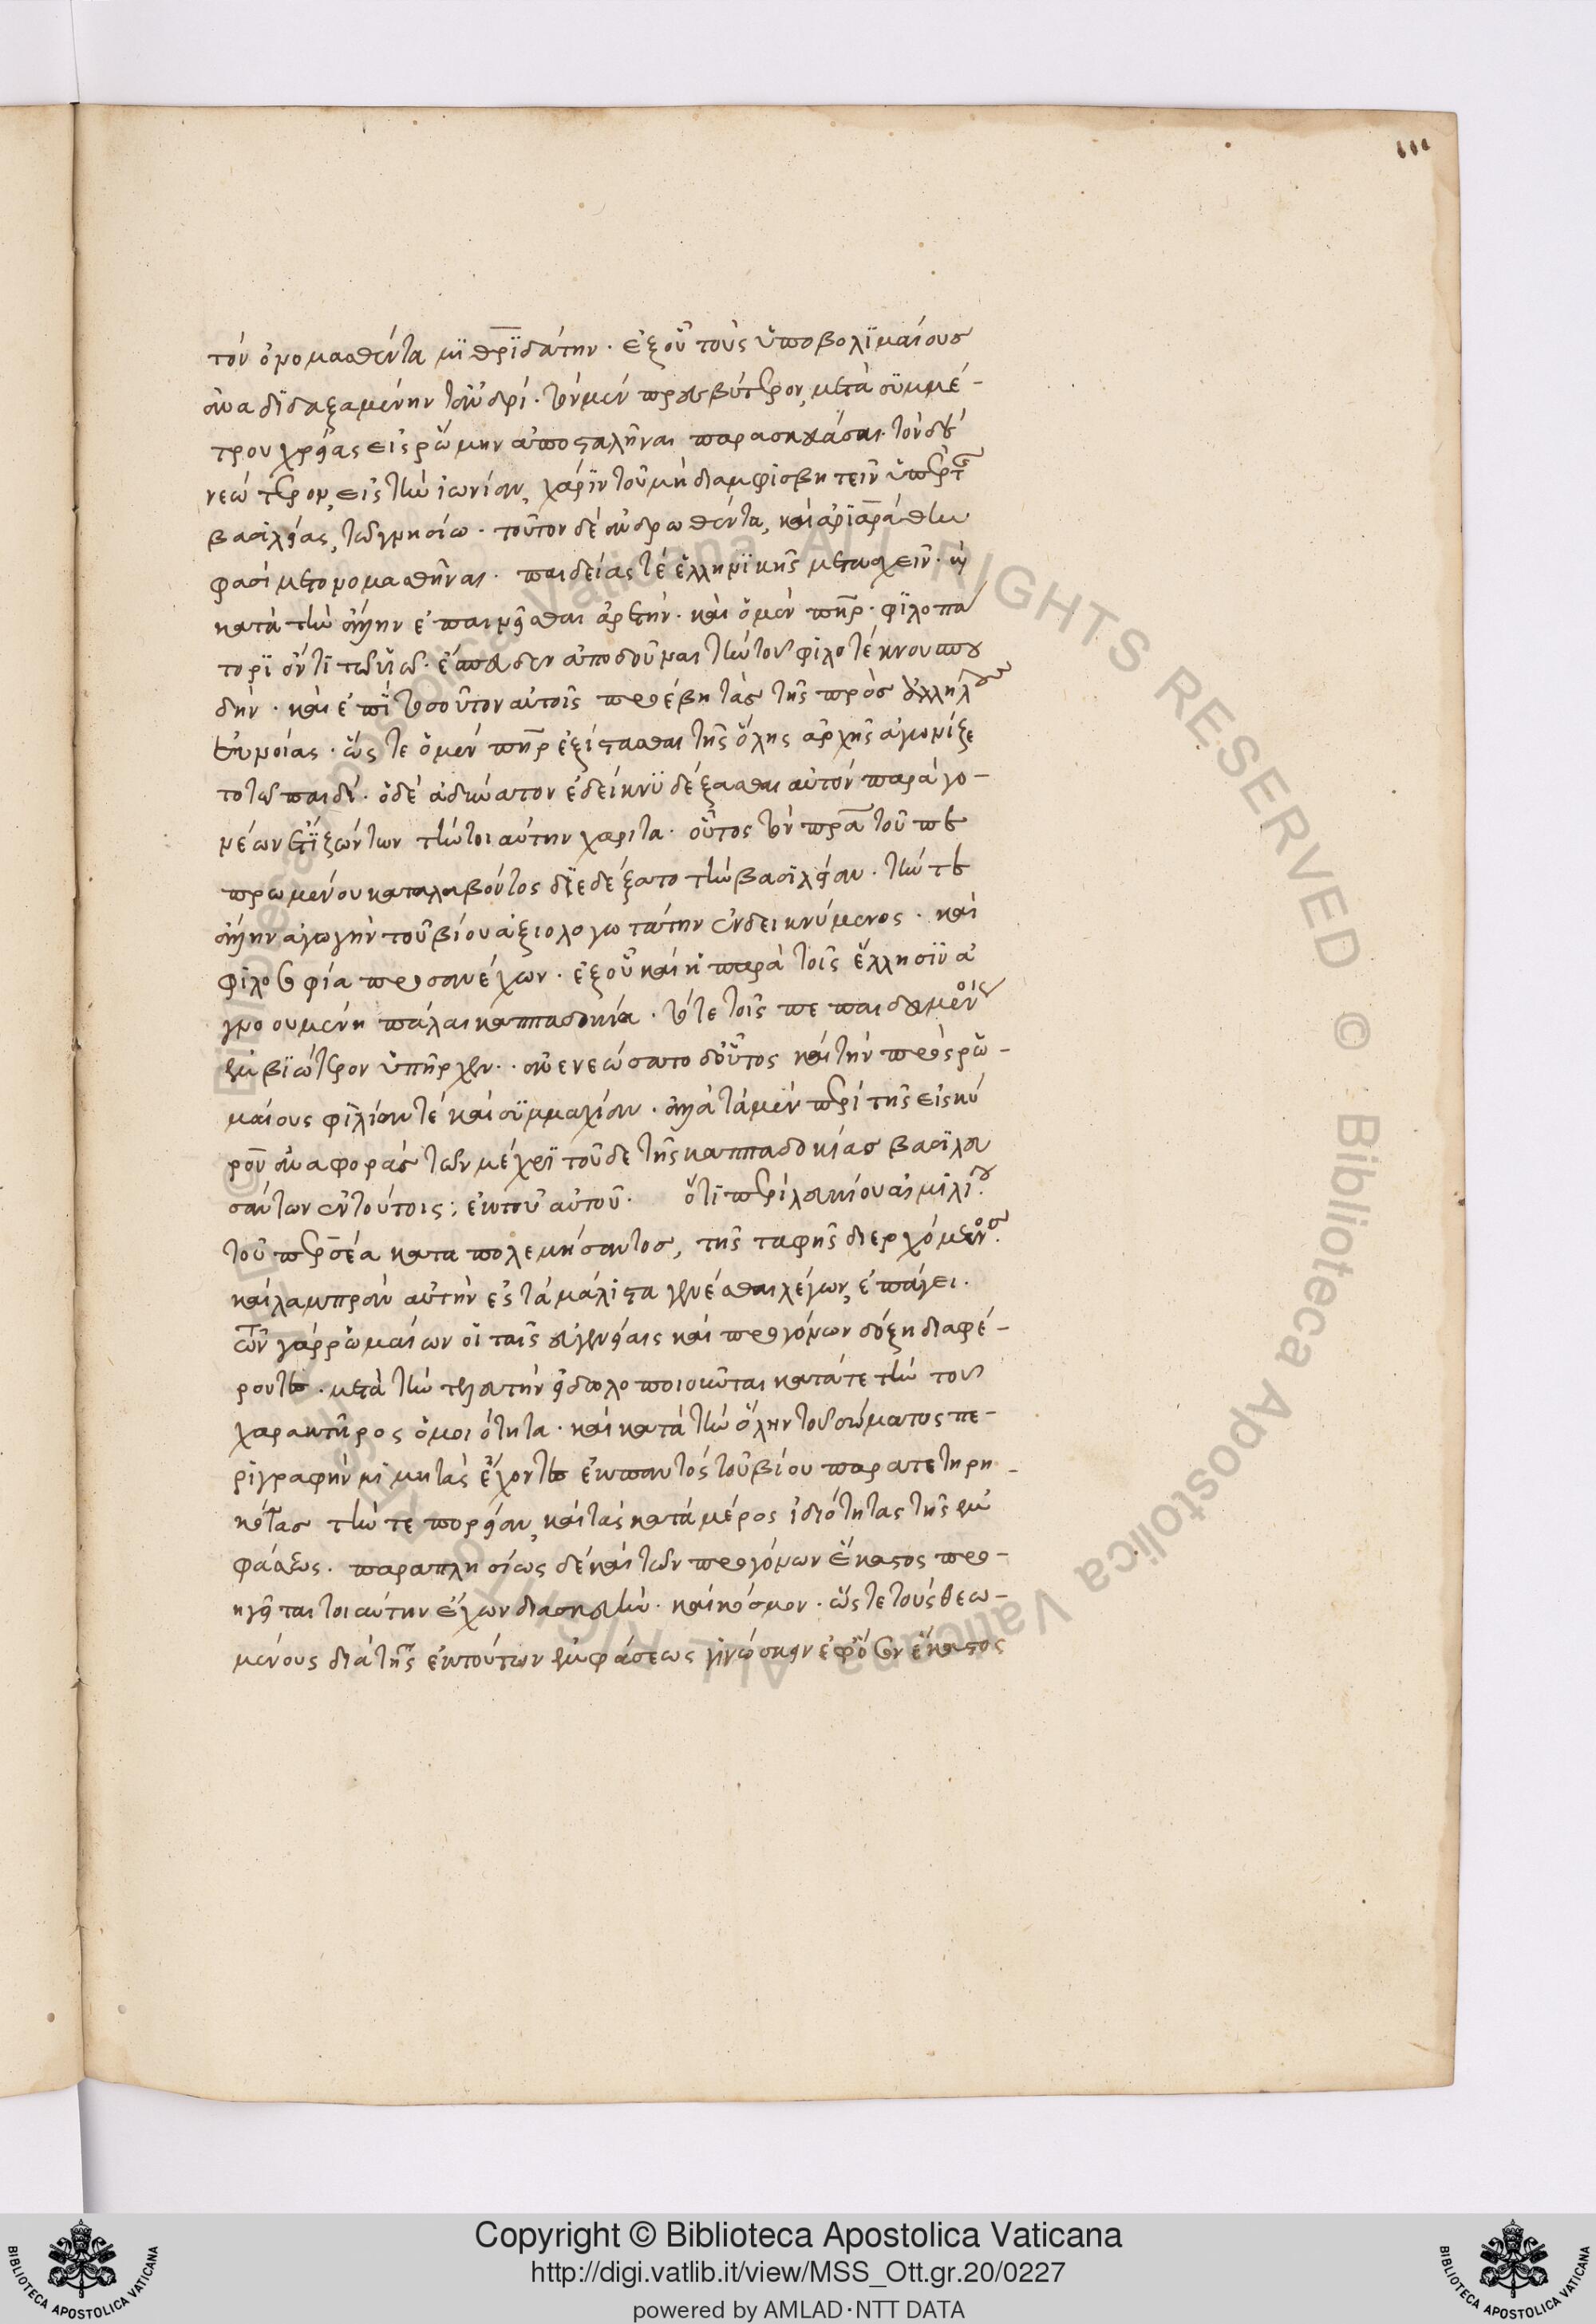 111
τὸν ὀνομασθέντα μϊθρϊδάτην· ἐξ οὗ τοὺς ὑποβολϊμαίους
ἀναδϊδαξαμένην τἀνδρί· τὸν μὲν πρεσβύτερον, μετὰ συμμέ-
τρου χρείας εἰς ῥώμην ἀποσταλῆναι παρασκευάσαι· τὸν δὲ
νεώτερον, εἰς τὴν ἰωνίαν, χάριν τοῦ μὴ διαμφισβητεῖν ὑπὲρ τῆς
βασιλείας, τῶ γνησίω· τοῦτον δὲ ἀνδρωθέντα, καὶ ἀρϊαράθην
φασὶ μετονομασθῆναι· παιδείας τὲ ἑλληνϊκῆς μετασχεῖν· καὶ
κατὰ τὴν ἄλλην ἐπαινεῖσθαι ἀρετήν· καὶ ὁ μὲν πηρ· φϊλοπά
τορϊ ὄντϊ τῶ ὑϊῶ· ἔσπευδεν ἀποδοῦναι τὴν τοῦ φιλοτέκνου σπου
δήν· καὶ ἐπϊτοσοῦτον αὐτοῖς προέβη τὰς τῆς πρὸς ἀλλήλους
εὐνοίας· ὥς τε ὁ μὲν πηρ ἐξίστασθαι τῆς ὅλης ἀρχῆς ἀγωνίζε
το τῶ παιδί· ὁ δὲ ἀδύνατον ἐδείκνϋ δέξασθαι αὐτὸν παρὰ γο-
νέων ἔτϊ ζώντων τὴν τοιαύτην χάριτα· οὗτος τὸν πρα τοῦ πε
πρωμένου καταλαβόντος δϊεδέξατο τὴν βασιλείαν· τήν τε
ἄλλην ἀγωγὴν τοῦ βίου ἀξιολογωτάτην ἐνδεικνύμενος· καὶ
φιλοσοφία προσανέχων· ἐξ οὗ καὶ ἡ παρὰ τοῖς ἕλλησιν ἀ
γνοουμένη πάλαι καππαδοκία· τότε τοῖς πεπαιδευμένοις
ἐμβιώτερον ὑπῆρχεν· ἀνενεώσατο δ' οὗτος καὶ τὴν πρὸς ῥω-
μαίους φϊλίαν τὲ καὶ συμμαχίαν· ἀλλὰ τὰ μὲν περὶ τῆς εἰς κύ
ρον ἀναφορᾶς τῶν μέχρϊ τοῦδε τῆς καππαδοκίας βασϊλευ
σάντων ἐν τούτοις; ἐκ τοῦ αὐτοῦ· ὅτϊ περὶ λευκίου αἰμιλίου
τοῦ περσέα καταπολεμήσαντος, τῆς ταφῆς διερχόμενος·
καὶ λαμπρὰν αὐτὴν ἐς τὰ μάλιστα γενέσθαι λέγων, ἐπάγει·
τῶν γὰρ ῥωμαίων οἱ ταῖς εὐγενείαις καὶ προγόνων δόξη διαφέ-
ροντες· μετὰ τὴν τελευτὴν εἰδωλοποιοῦνται κατά τε τὴν τοῦ
χαρακτῆρος ὁμοιότητα· καὶ κατὰ τὴν ὅλην τοῦ σώματος πε-
ριγραφὴν μιμητὰς ἔχοντες ἐκ παντὸς τοῦ βίου παρατετηρη-
κότας τήν τε πορείαν, καὶ τὰς κατὰ μέρος ἰδιότητας τῆς ἐμ
φάσεως· παραπλησίως δὲ καὶ τῶν προγόνων ἕκαστος προ-
ηγεῖται τοιαύτην ἔχων διασκευήν· καὶ κόσμον· ὥς τε τοὺς θεω-
μένους διὰ τῆς ἐκ τούτων ἐμφάσεως γινώσκειν ἐφ' ὅσον ἕκαστος
Copyright © Biblioteca Apostolica Vaticana
http://digi.vatlib.it/view/MSS_Ott.gr.20/0227
powered by AMLAD·NTT DATA